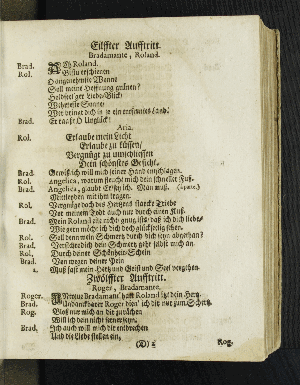 Eilffter Aufftritt.
Bradamante, Roland.
Brad. Ach Roland.
Rol. Bistu erschienen
O angenehmste Wonne
Soll meine Hoffnung grünen?
Holdseelger Liebs-Blick/
Wehrteste Sonne/
Wer bringt dich in ein entferntes Land?
Brad. Er raast O Unglück!
Aria.
Rol. Erlaube mein Licht
Erlaube zu küssen/
Vergnügt zu umschliessen
Dein schönstes Gesicht.
Brad. Gewiß ich will mich seiner Hand entschlagen.
Rol. Angelica, warum fleucht mich dein schneller Fuß.
Brad. Angelica, glaubt Er sey ich. Man muß. (à parte.)
Mittleyden mit ihm tragen.
Rol. Vergnüge doch des Hertzens starcke Triebe
Vor meinem Todt auch nur durch einen Kuß.
Brad. Mein Roland ists nicht gnug daß ich dich liebe/
Wie gern möcht ich dich doch glückseelig sehen.
Rol. Soll denn mein Schmertz durch dich seyn vergehen?
Brad. Versichre dich dein Schmertz geht selbst mich an.
Rol. Durch deiner Schönheit Schein
Brad. Von wegen deiner Pein
à 2. Muß fast mein Hertz und Geist und Seel vergehen.
Zwölffter Aufftritt.
Roger, Bradamante.
Roger. Treulose Bradamant' hat Roland itzt dein Hertz.
Brad. Undanckbarer Roger dien' ich dir nur zum Schertz.
Rog. Bloß nur mich an dir zu rächen
Will ich dein nicht ferner seyn.
Brad. Ich auch will mich dir entbrechen
Und die Liebe stellen ein.
(D) 2 Rog.